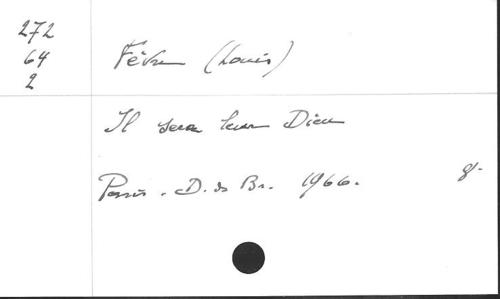 272
64
2
Fèvre (Louis)
Il sera leur Dieu
Paris. D. de Br. 1966.